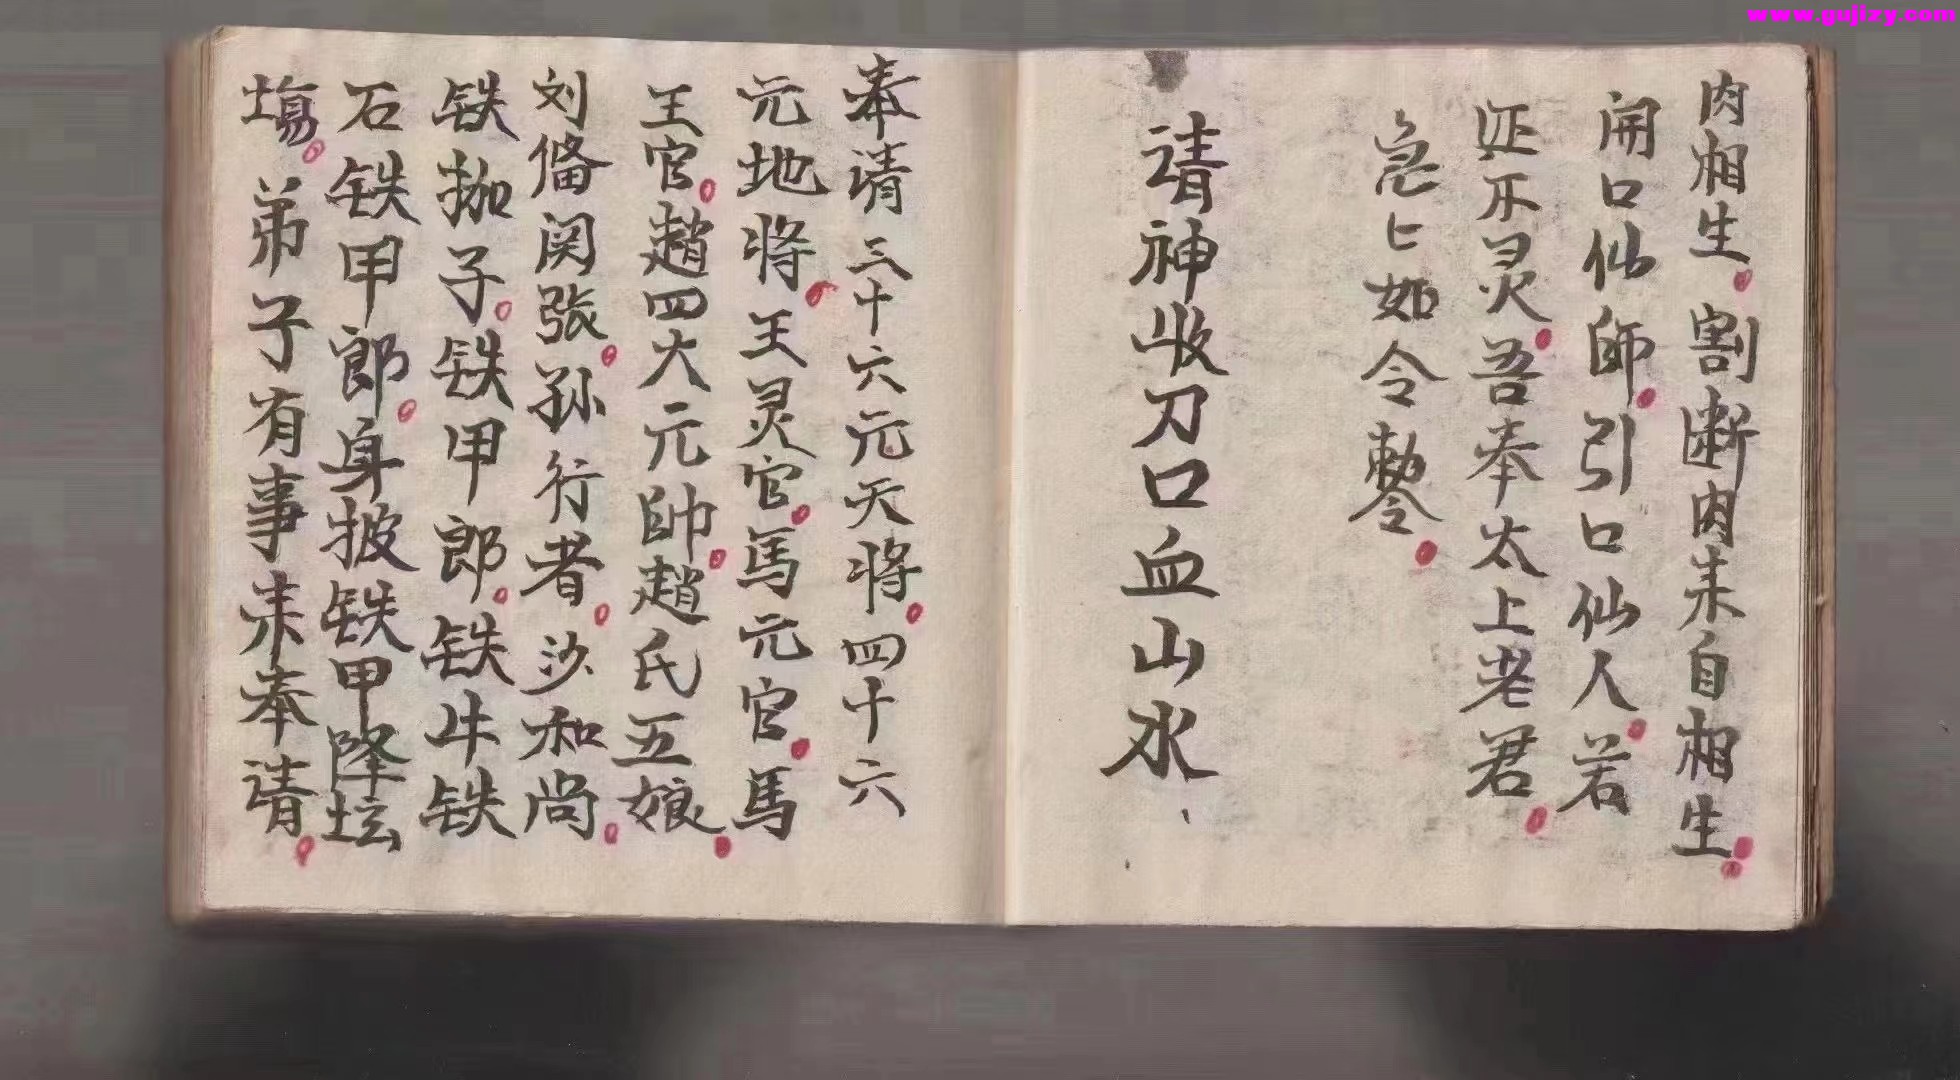 www.gujizy.com
肉相生。割断肉来自相生。
開口仙師。引口仙人。若
还不灵。吾奉太上老君。
急匕如令勅令。
请神收刀口血山水、
奉请三十六元天将。四十六
元地将。王灵官。馬元官。馬
王官。趙四大元帥。趙氏五娘。
刘俻関張。孙行者。沙和尚。
铁拁子。铁甲郎。铁牛铁
石铁甲郎。身披铁甲降坛
塲。弟子有事来奉请。